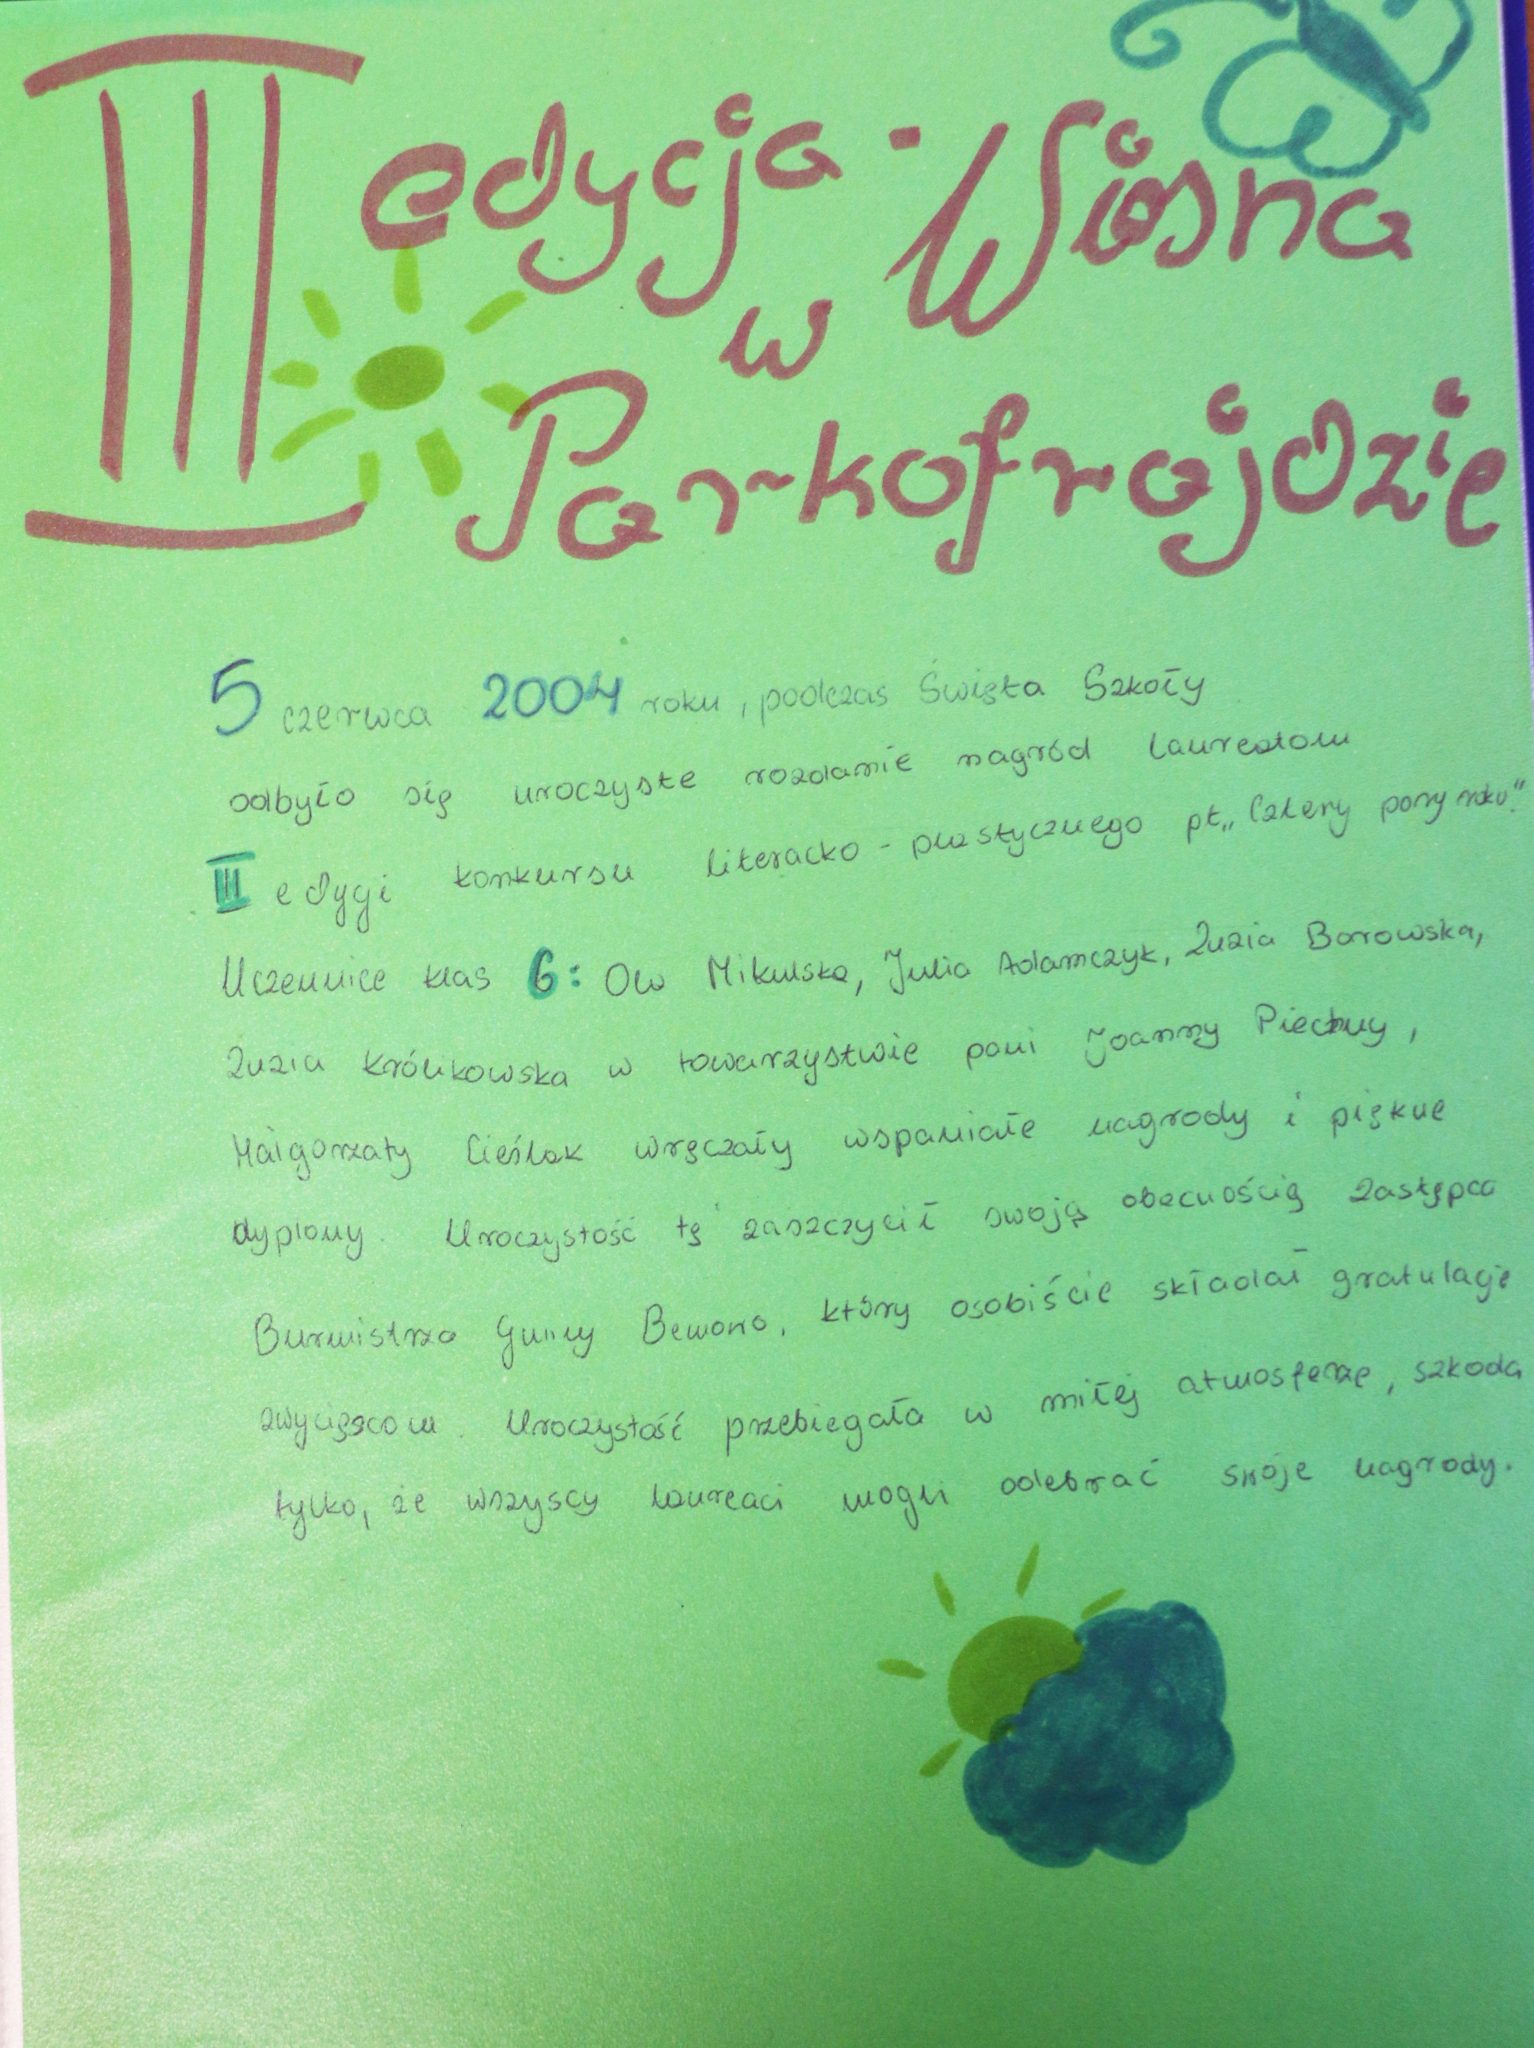 III edycja - Wiosna
w
Parkofrajdzie
5 czerwca 2004 roku, podczas Święta Szkoły
odbyło się uroczyste rozdanie nagród laureatom
III edycji konkursu literacko - plastycznego pt. „Cztery pory roku".
Uczennice klas 6: Ola Mikulska, Julia Adamczyk, Zuzia Borowska,
Zuzia Królikowska w towarzystwie pani Joanny Piechny,
Małgorzaty Cieślak wręczały wspaniałe nagrody i piękne
dyplomy. Uroczystość tę zaszczycił swoją obecnością zastępca
Burmistrza Gminy Bemowo, który osobiście składał gratulacje
zwycięzcom. Uroczystość przebiegała w miłej atmosferze, szkoda
tylko, że wszyscy laureaci mogli odebrać swoje nagrody.